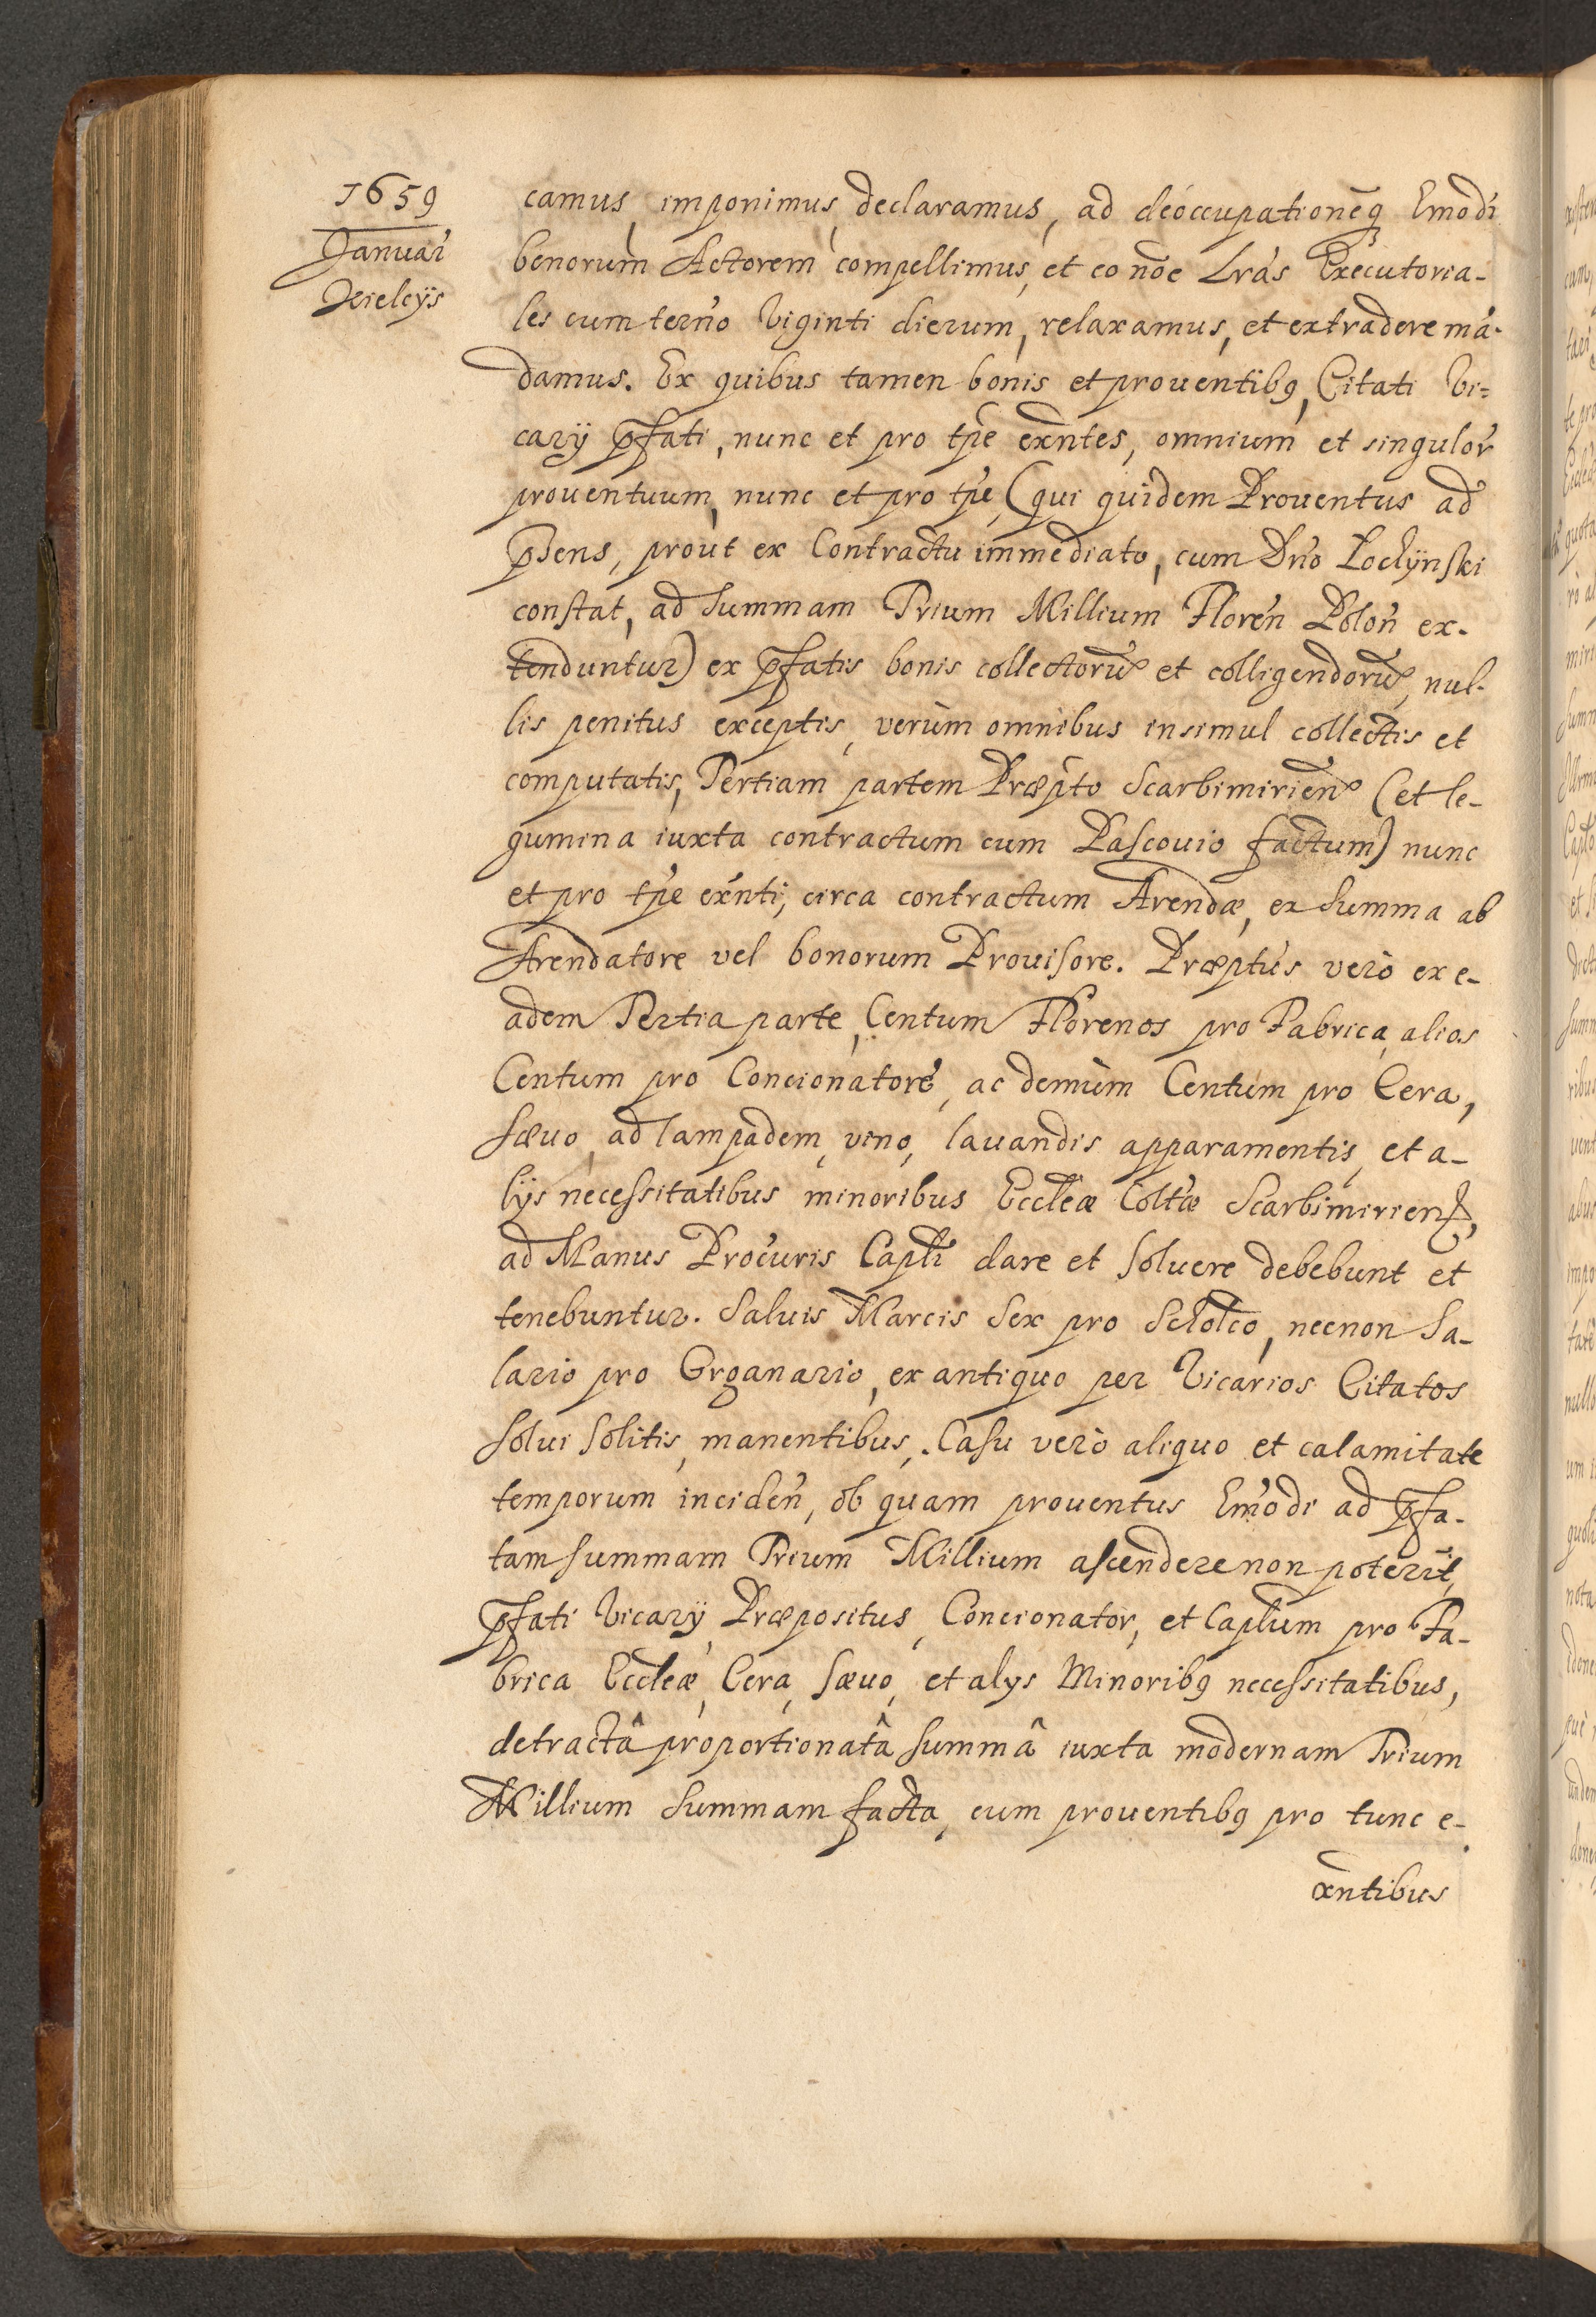 1659
Januar
Kielcys
camus, imponimus, declaramus, ad deoccupationēq Emodi
bonorum Actorem compellimus, et eo nōe Lrās Executoria-
les cum termo Viginti dierum, relaxamus, et extradere mā-
damus. Ex quibus tamen bonis et prouentibq, Citati Vi=
carÿ p̄fati, nunc et pro tp̄e exn̄tes, omnium et singulor
prouentuum, nunc et pro tp̄e, (qui quidem Prouentus ad
p̄sens, prout ex Contractu immediato, cum Dn̄o
constat, ad summam Trium Millium Floren Polon ex-
tenduntur) ex p̄fatis bonis collectorū et colligendorū, nul-
lis penitus exceptis, verùm omnibus insimul collectis et
computatis, Tertiam partem Præpto Scarbimirien (et le-
gumina iuxta contractum cum Pascouio factum) nunc
et pro tp̄e exn̄ti, circa contractum Arendæ, ex summa ab
Arendatore vel bonorum Prouisore. Præptus verò ex e-
adem Tertia parte, Centum Florenos pro Fabrica, alios
Centum pro Concionatore, ac demùm Centum pro Cera,
sæuo, ad lampadem, vino, lauandis apparamentis, et a-
lÿs necessitatibus minoribus Eccl̄eæ Colt̄æ Scarbimirien,
ad Manus Procuris Capl̄i dare et soluere debebunt et
tenebuntur. Saluis Marcis Sex pro Scholco, necnon Sa-
lario pro Organario, ex antiquo per Vicarios Citatos
solui solitis, manentibus. Casu verò aliquo et calamitate
temporum inciden, ob quam prouentus Emodi ad p̄fa-
tam summam Trium Millium ascendere non poterit,
p̄fati Vicarÿ, Præpositus, Concionator, et Caplum pro Fa-
brica Eccl̄eæ, Cera, sæuo, et alys Minoribq necessitatibus,
detractâ proportionatâ summâ iuxta modernam Trium
Millium Summam facta, cum prouentibq pro tunc e-
xn̄tibus